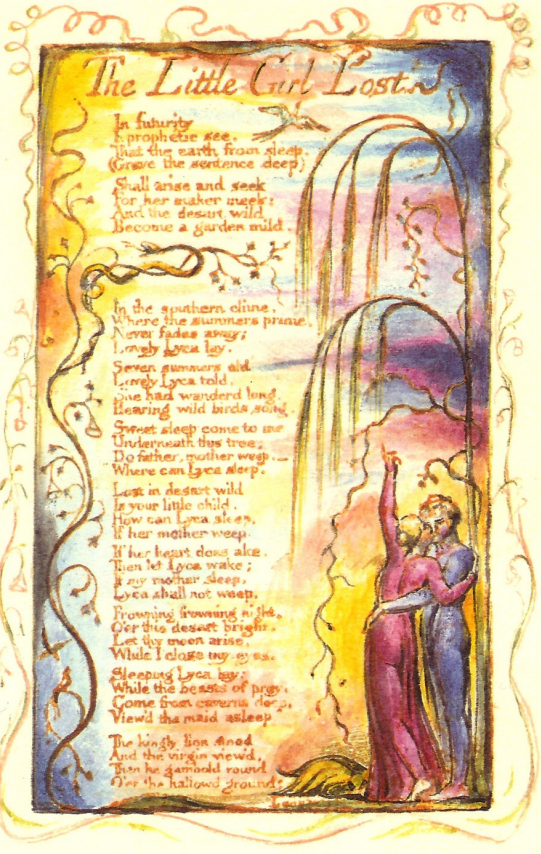 The Little Girl Lost
In futurity
I prophetic see.
That the earth from sleep.
(Grave the sentence deep)
Shall arise and seek
For her maker meek:
And the desart wild
Become a garden mild.
In the southern clime.
Where the summers prime.
Never fades away;
Lovely Lyca lay.
Seven summers old
Lovely Lyca told.
She had wanderd long.
Hearing wild birds song.
Sweet sleep come to me
Underneath this tree;
Do father, mother weep.
Where can Lyca sleep.
Lost in desart wild
Is your little child.
How can Lyca sleep.
If her mother weep.
If her heart does ake.
Then let Lyca wake;
If my mother sleep.
Lyca shall not weep.
Frowning frowning night,
O'er this desart bright.
Let thy moon arise.
While I close my eyes.
Sleeping Lyca lay;
While the beasts of prey,
Come from caverns deep,
View'd the maid asleep
The kingly lion stood
And the virgin view'd,
Then he gambold round
O'er the hallowd ground: